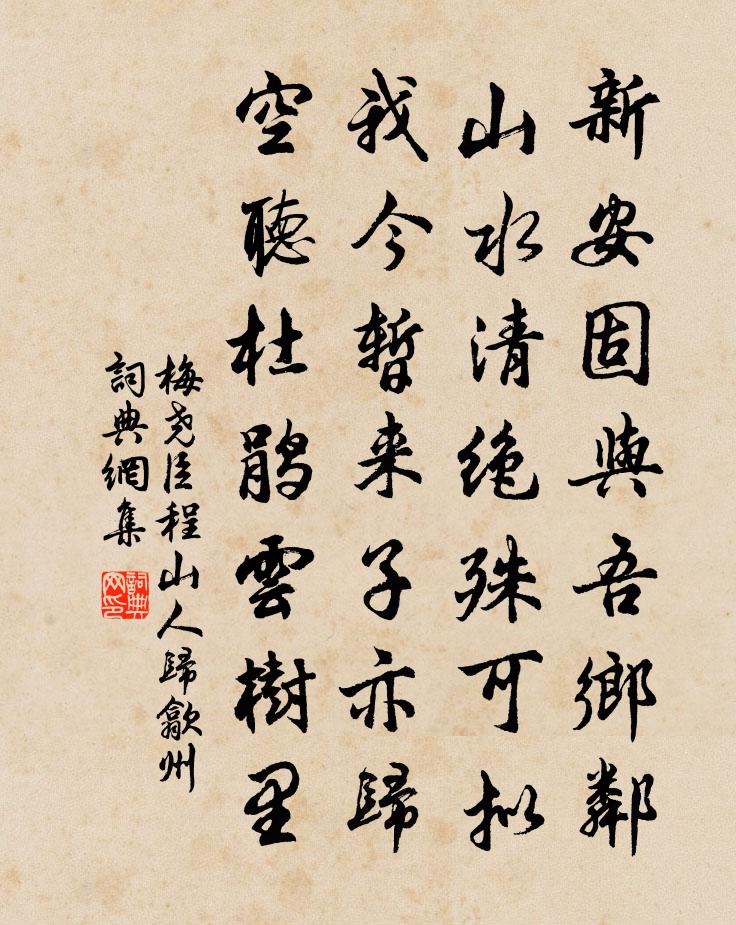 新安固與吾鄉鄰
山水清絶殊可拟
我今暫来子亦歸
空聴杜鹃雲樹里
梅尧臣程山人歸歙州
詞典網集
詞典网印